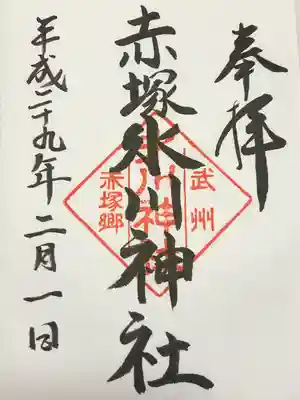 奉拝
武州
赤塚氷川神社
氷川神社
赤塚郷
平成二十九年二月一日